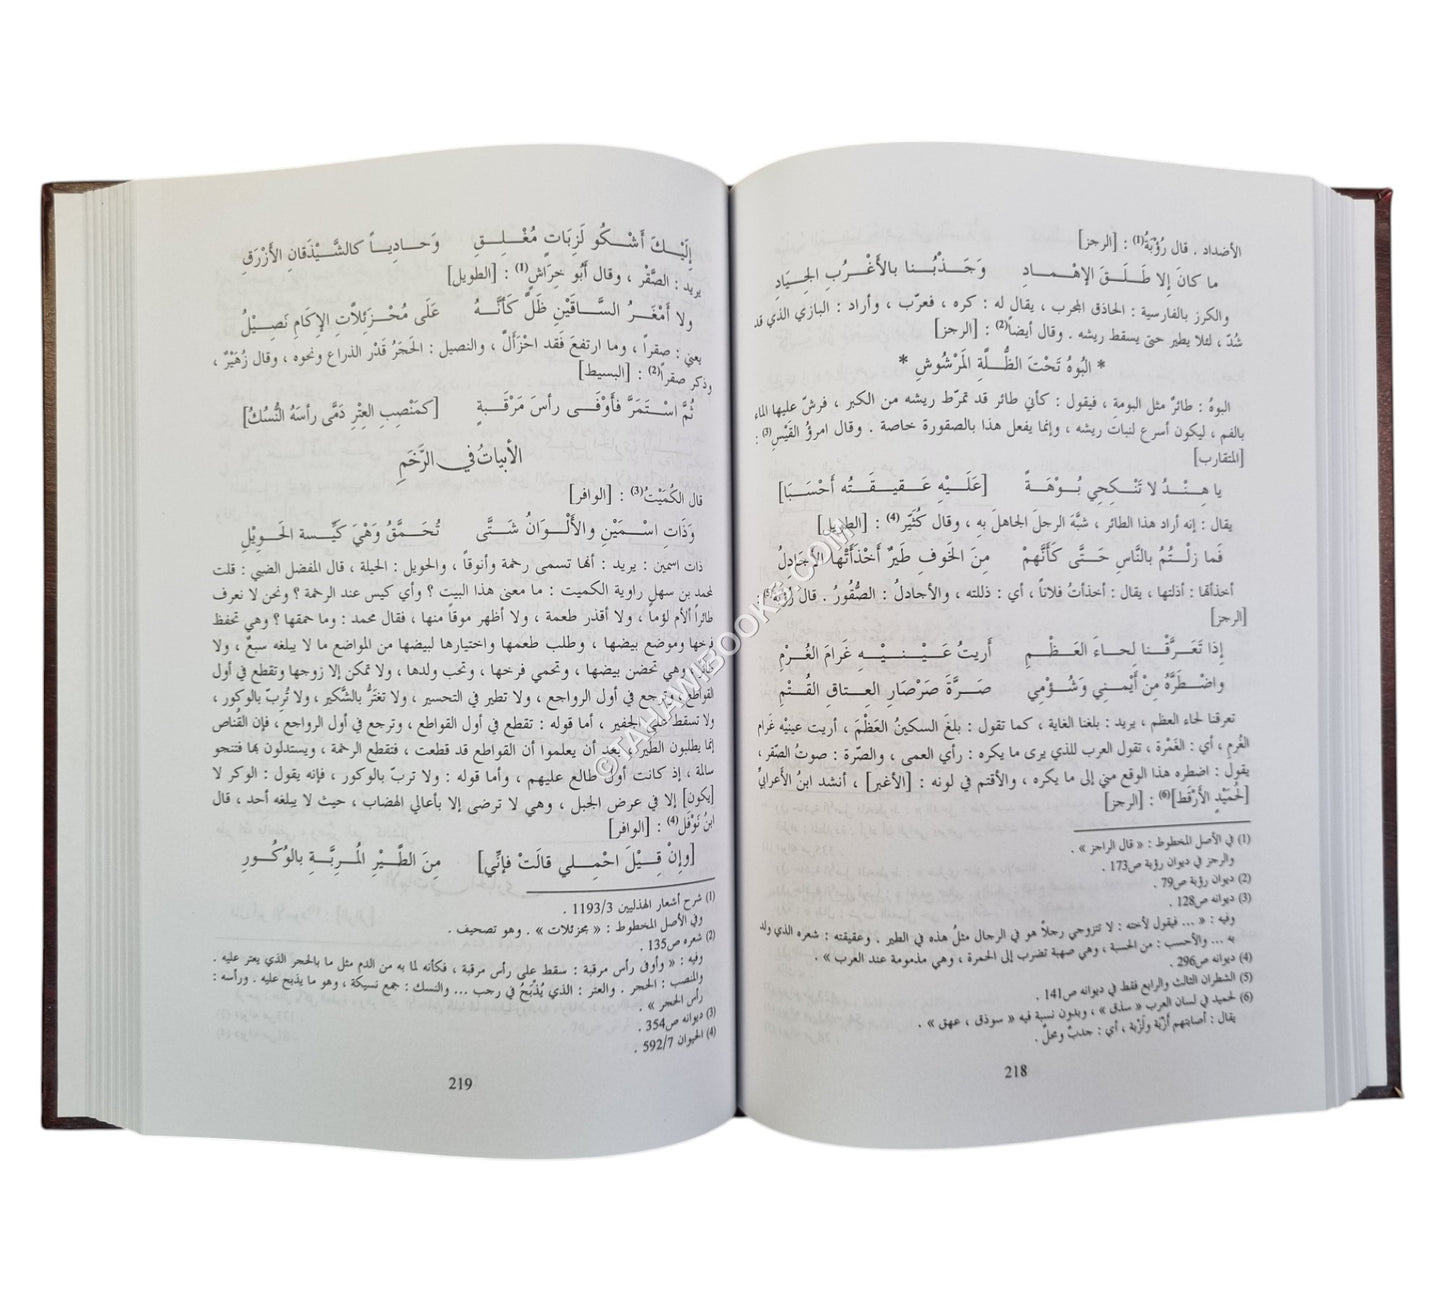 الأضداد . قال رُؤْبَةُ(1) : [الرجز]
ما كانَ إِلا طَلَقَ الإِهْمادِ وَجَذْبُنا بالأَغْرُبِ الجِيَادِ
والكرز بالفارسية : الحاذق المجرب ، يقال له : كره ، فعرّب ، وأراد : البازي الذي قد
شُدّ ، لئلا يطير حتى يسقط ريشه . وقال أيضاً(2) : [الرجز]
* البُوهُ تَحْتَ الظُّلَّةِ المَرْشُوشِ *
البوهُ : طائرٌ مثل البومة ، فيقول : كأني طائر قد تمرّط ريشه من الكبر ، فرشّ عليها الماء
بالفم ، ليكون أسرع لنبات ريشه ، وإنما يفعل هذا بالصقورة خاصة . وقال امرؤُ القَيْسِ(3) :
[المتقارب]
يا هِنْدُ لا تَنْكِحِي بُوْهَةً [عَلَيْهِ عَقيقَتُه أَحْسَبَا]
يقال : إنه أراد هذا الطائر ، شبَّه الرجلَ الجاهلَ به ، وقال كُثَيِّر(4) : [الطويل]
فَما زلْتُمُ بالنَّاسِ حَتَّى كَأَنَّهمْ مِنَ الخَوفِ طَيرٌ أَخْذَأَتْها الأَجَادلُ
أخذأتها : أذلتها ، يقال : أخذأتُ فلاناً ، أي : ذللته ، والأجادلُ : الصُّقُورُ . قال رُؤبة(5) :
[الرجز]
إِذا تَعَرَّقْنا لحاءَ العَظْمِ أَريتُ عَيْنيْهِ غَرامَ الغُرْمِ
واضْطَرَّهُ مِنْ أَيْمني وَشُؤْمي صَرَّةَ صَرْصَارِ العِتاقِ القُتْمِ
تعرقنا لحاء العظم ، يريد : بلغنا الغاية ، كما تقول : بلغَ السكينُ العَظْمَ ، أريت عينيْه غرام
الغُرمِ ، أي : الغَمْرة ، تقول العرب للذي يرى ما يكره : رأي العمى ، والصّرة : صوتُ الصّقر ،
يقول : اضطره هذا الوقع مني إلى ما يكره ، والأقتم في لونه : [الأغبر] ، أنشد ابنُ الأعرابيِّ
[لحُميْدٍ الأَرْقَط](6) : [الرجز]
(1) في الأصل المخطوط : « قال الراجز » .
والرجز في ديوان رؤبة ص173 .
(2) ديوان رؤبة ص79 .
(3) ديوانه ص128 .
وفيه : « ... فيقول لأخته : لا تتزوجي رجلاً هو في الرجال مثلُ هذه في الطير . وعقيقته : شعره الذي ولد
به ... والأحسب : من الحسبة ، وهي صهبة تضرب إلى الحمرة ، وهي مذمومة عند العرب » .
(4) ديوانه ص296 .
(5) الشطران الثالث والرابع فقط في ديوانه ص141 .
(6) لحميد في لسان العرب « سذق » ، وبدون نسبة فيه « سوذق ، عهق » .
يقال : أصابتهم أَزْبة ولَزْبة ، أي : جدبٌ ومحلٌ .
218
إِلَيْكَ أَشْكُو لَزِبَاتٍ مُغْلِقِ وَحَادِياً كالشَّيْذَقانِ الأَزْرَقِ
يريد : الصَّقْر ، وقال أَبُو خِرَاش(1) : [الطويل]
ولا أَمْغَرُ السَّاقَيْنِ ظَلَّ كَأَنَّهُ عَلَى مُحْزَئلاَّتِ الإِكَامِ نَصِيْلُ
يعني : صقراً ، وما ارتفعَ فَقد احْزَأَلّ ، والنصيل : الحَجَرُ قَدْر الذراع ونحوه ، وقال زُهَيْرٌ ،
وذكر صقراً(2) : [البسيط]
ثُمَّ اسْتَمَرَّ فأَوْفَى رأسَ مَرْقَبةٍ [كمَنْصِبِ العِتْرِ دَمَّى رأسَهُ النُّسكُ]
الأبياتُ في الرَّخَمِ
قال الكُمَيْتُ(3) : [الوافر]
وَذَاتِ اسْمَيْنِ والأَلْوَانُ شَتَّى تُحَمَّقُ وَهْيَ كَيِّسة الحَوِيْلِ
ذات اسمين : يريد : أنها تسمى رخمة وأنوقاً ، والحويل : الحيلة ، قال المفضل الضبي : قلت
لمحمد بن سهلٍ راوية الكميت : ما معنى هذا البيت ؟ وأي كيس عند الرخمة ؟ ونحن لا نعرف
طائراً ألأم لؤماً ، ولا أقذر طعمة ، ولا أظهر موقاً منها ، فقال محمد : وما حمقها ؟ وهي تحفظ
فرخها وموضع بيضها ، وطلب طعمها واختيارها لبيضها من المواضع ما لا يبلغه سبعٌ ، ولا
طائر ، وهي تحضن بيضها ، وتحمي فرخها ، وتحب ولدها ، ولا تمكن إلا زوجها وتقطع في أول
القواطع ، وترجع في أول الرواجع ، ولا تطير في التحسير ، ولا تغتَرُّ بالشَّكير ، ولا تُربّ بالوكور ،
ولا تسقط على الجفير ، أما قوله : تقطع في أول القواطع ، وترجع في أول الرواجع ، فإن القُناص
إنما يطلبون الطير ، بعد أن يعلموا أن القواطع قد قطعت ، فتقطع الرخمة ، ويستدلون بها فتنجو
سالمة ، إذ كانت أول طالع عليهم ، وأما قوله : ولا تربّ بالوكور ، فإنه يقول : الوكر لا
[يكون] إلا في عرض الجبل ، وهي لا ترضى إلا بأعالي الهضاب ، حيث لا يبلغه أحد ، قال
ابنُ نَوْفَل(4) : [الوافر]
[وإِنْ قِيْلَ احْمِلي قالَتْ فإِنِّي] مِنَ الطَّيْرِ المُربَّةِ بالوُكُورِ
(1) شرح أشعار الهذليين 1193/3 .
وفي الأصل المخطوط : « بحزئلات » . وهو تصحيف .
(2) شعره ص135 .
وفيه : « وأوفى رأس مرقبة : سقط على رأس مرقبة ، فكأنه لما به من الدم مثل ما بالحجر الذي يعتر عليه .
والمنصب : الحجر . والعتر : الذي يُذْبَحُ في رجب ... والنسك : جمع نسيكة ، وهو ما يذبح عليه . ورأسه :
رأس الحجر » .
(3) ديوانه ص354 .
(4) الحيوان 592/7 .
219
©TAHAWIBOOKS.COM